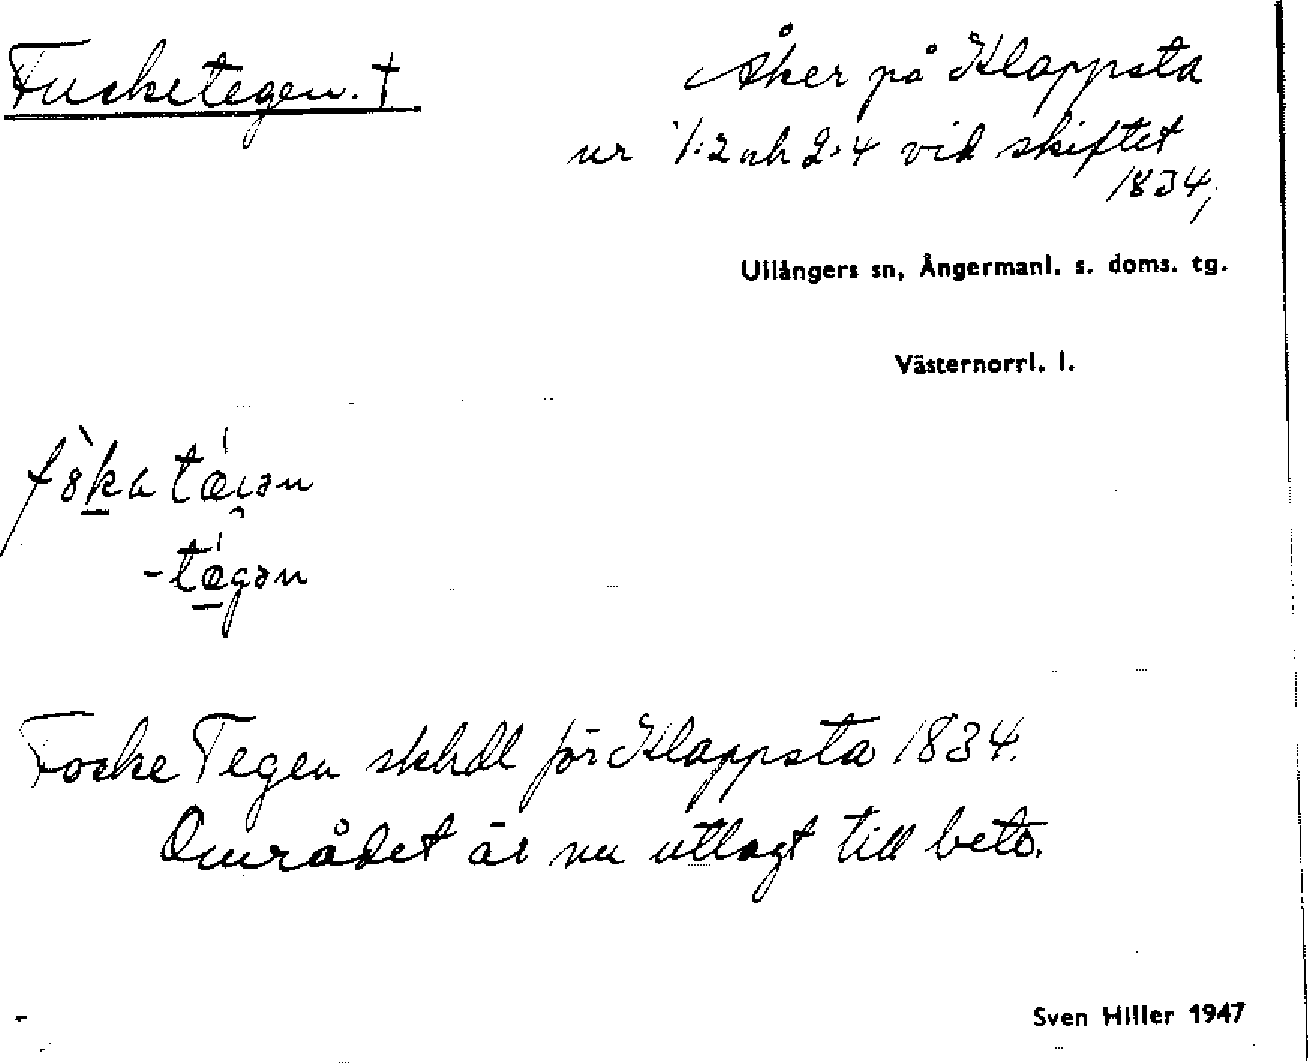 Fucketegen. †
Åker på Klappsta
nr 1:2 och 2:4 vid skiftet
1834,
Ullångers sn, Ångermanl. s. doms. tg.
Västernorrl. l.
-tægən
Focke Tegen skhdl för Klappsta 1834.
Området är nu utlagt till bete.
Sven Hiller 1947